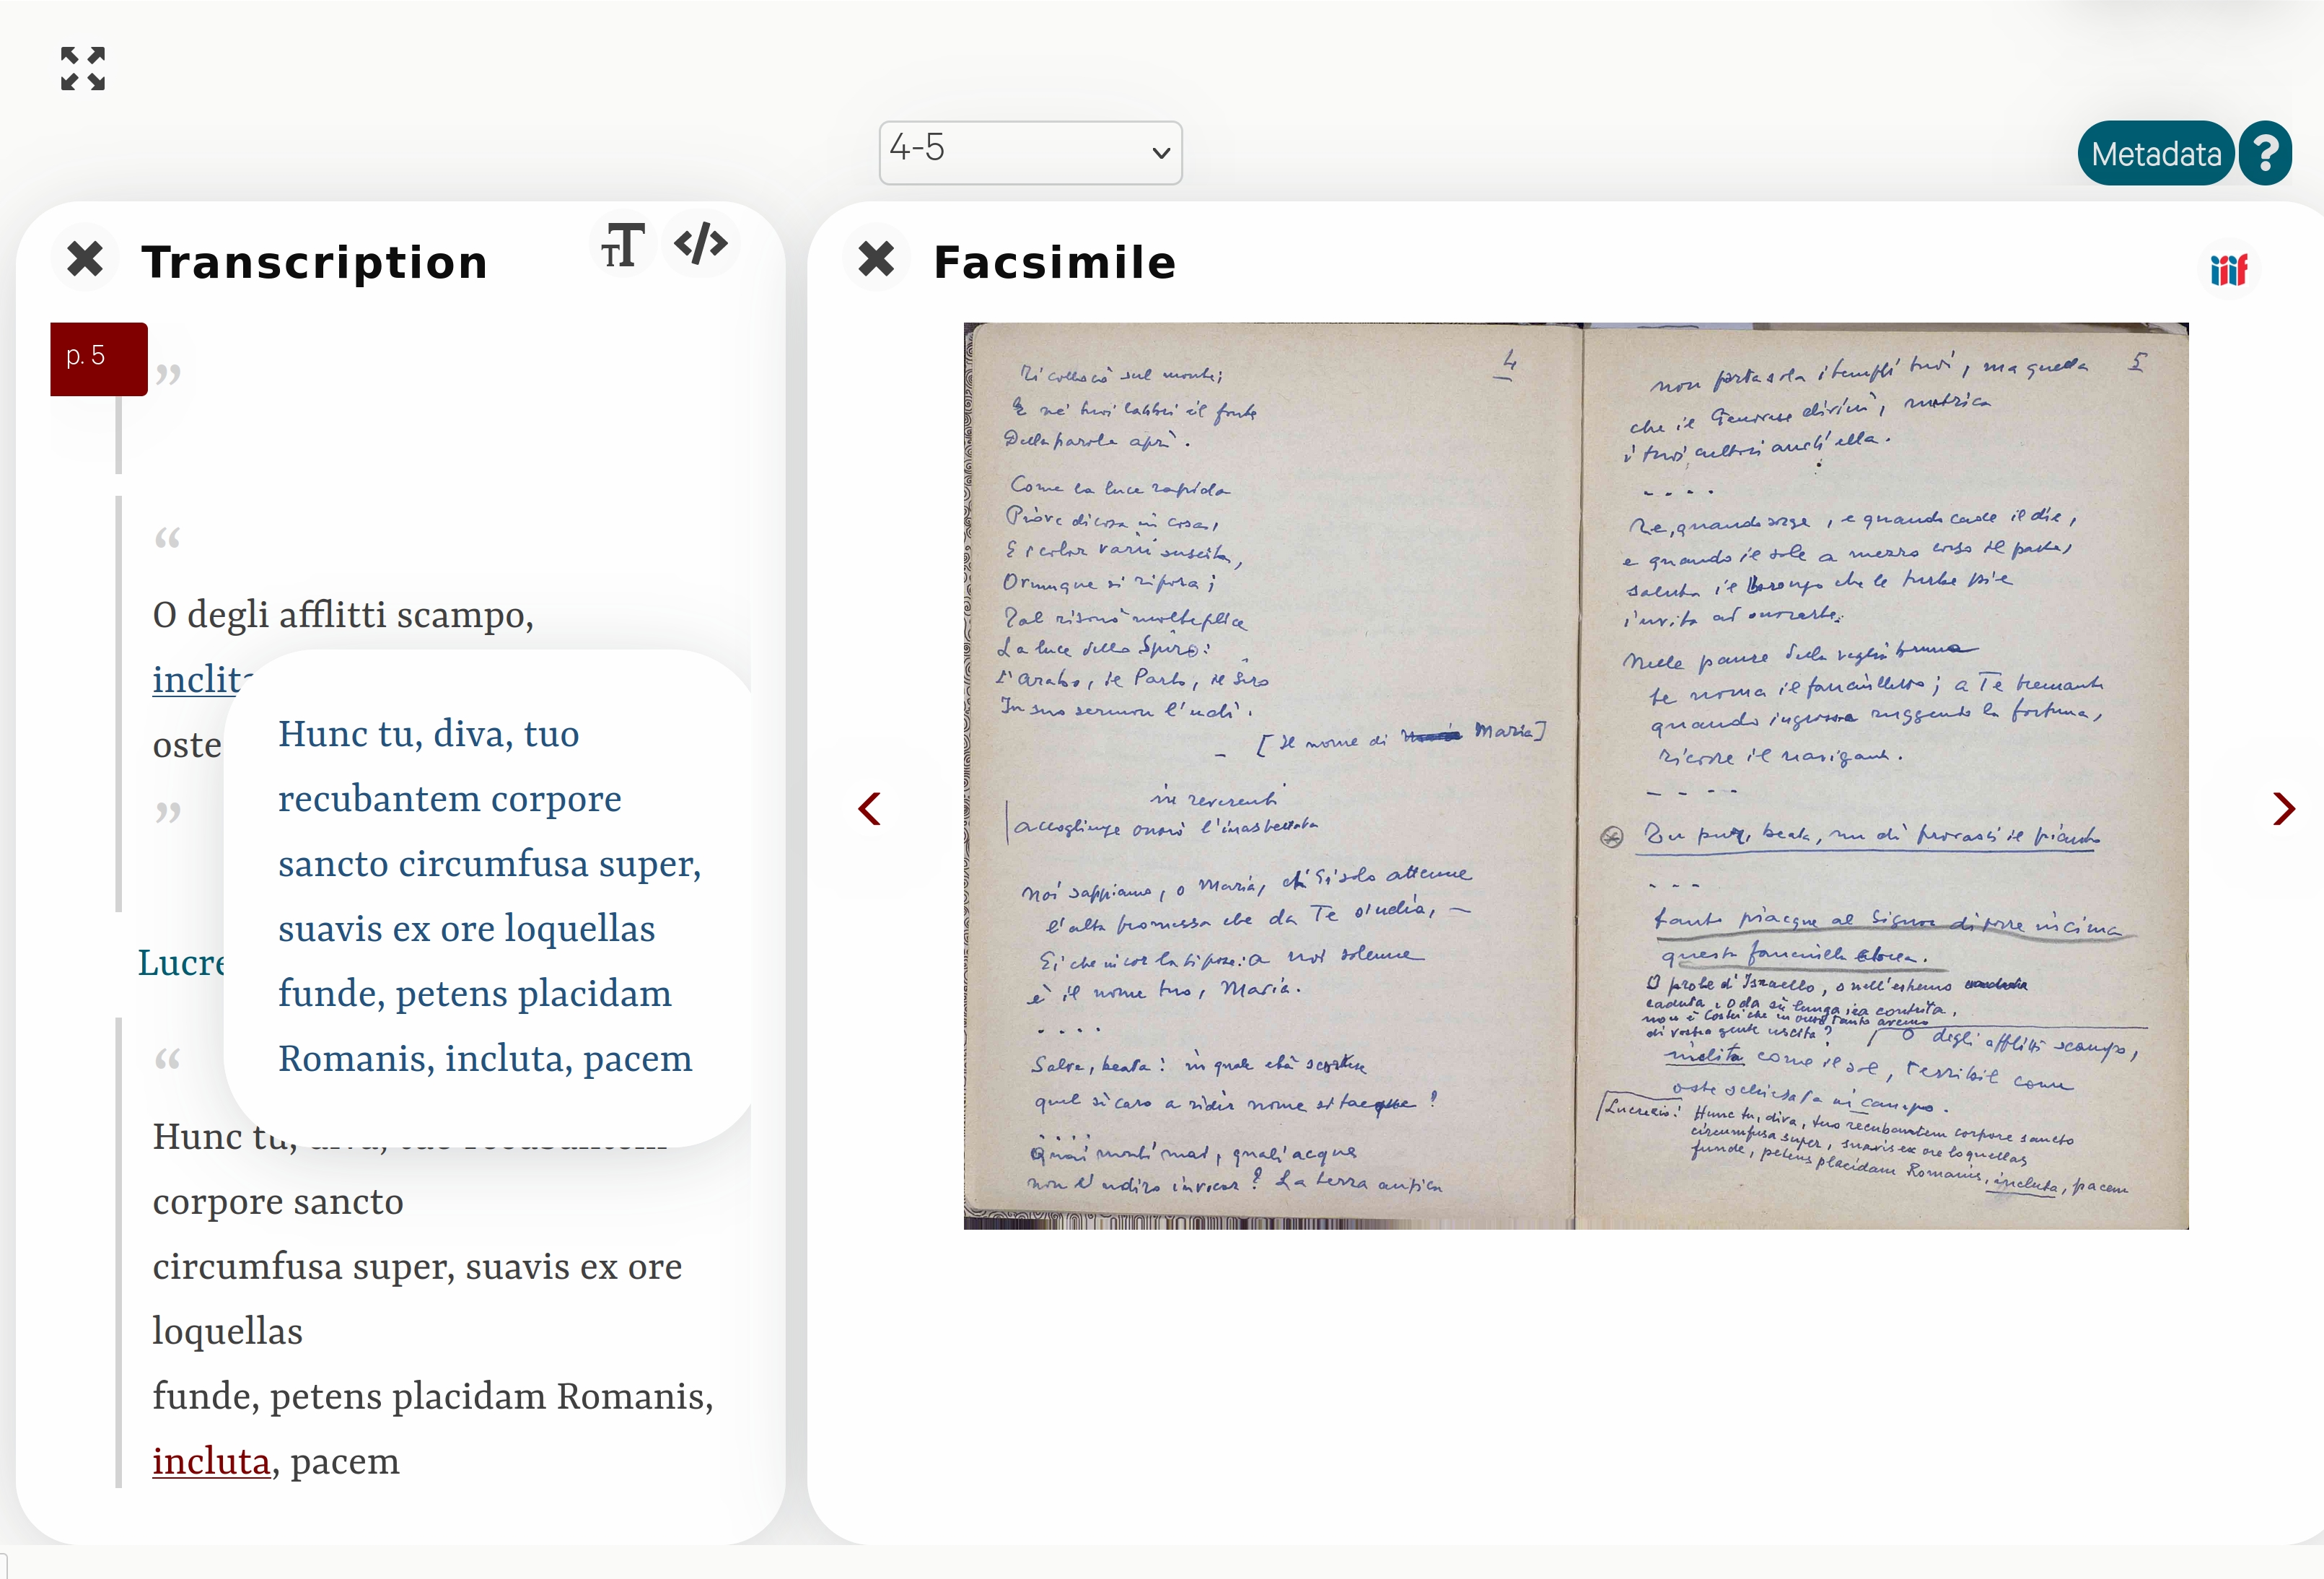 4-5
Metadata
?
Transcription
TT
</>
p. 5
”
“
O degli afflitti scampo,
inclita
oste
”
Hunc tu, diva, tuo
recubantem corpore
sancto circumfusa super,
suavis ex ore loquellas
funde, petens placidam
Romanis, incluta, pacem
Lucre
“
Hunc tu, diva, tuo recubantem
corpore sancto
circumfusa super, suavis ex ore
loquellas
funde, petens placidam Romanis,
incluta, pacem
Facsimile
iiif
4
Ti collocò sul monte;
E ne' tuoi labbri il fonte
Della parola aprì.
Come la luce rapida
Piove di cosa in cosa,
E i color varii suscita,
Ovunque si riposa;
Tal risonò molteplice
La luce dello Spiro:
L'Arabo, il Parto, il Siro
In suo sermon l'udì.
– [Il nome di Maria]
in reverenti
accoglienze onorò l'inaspettata
Noi sappiamo, o Maria, ch'Ei solo attenne
l'alta promessa che da Te s'udìa, –
Ei che in cor la ti pose: a noi solenne
è il nome tuo, Maria.
. . . .
Salve, beata: in quale età scortese
quel sì caro a ridir nome si tacque?
. . . .
Quai monti mai, quali acque
non l'udiro invocar? La terra antica
5
non porta sola i templi tuoi, ma quella
che il Genovese divinò, nutrica
i tuoi cultori anch'ella.
. . . .
Te, quando sorge, e quando cade il die,
e quando il sole a mezzo corso il parte,
saluta il bronzo che le turbe pie
invita ad onorarte.
Nelle paure della veglia bruna
te noma il fanciulletto; a Te tremante
quando ingrossa ruggendo la fortuna,
ricorre il navigante.
– – – –
Tu pur, beata, un dì provasti il pianto
- - -
tanto piacque al Signor di porre in cima
questa fanciulla ebrea.
O prole d'Israello, o nell'estremo
caduta, o da sì lunga ira contrita,
non è Costei che in onor tanto avemo
di vostra gente uscita?
O degli afflitti scampo,
inclita come il sol, terribil come
oste schierata in campo.
Lucrezio: Hunc tu, diva, tuo recubantem corpore sancto
circumfusa super, suavis ex ore loquellas
funde, petens placidam Romanis, incluta, pacem